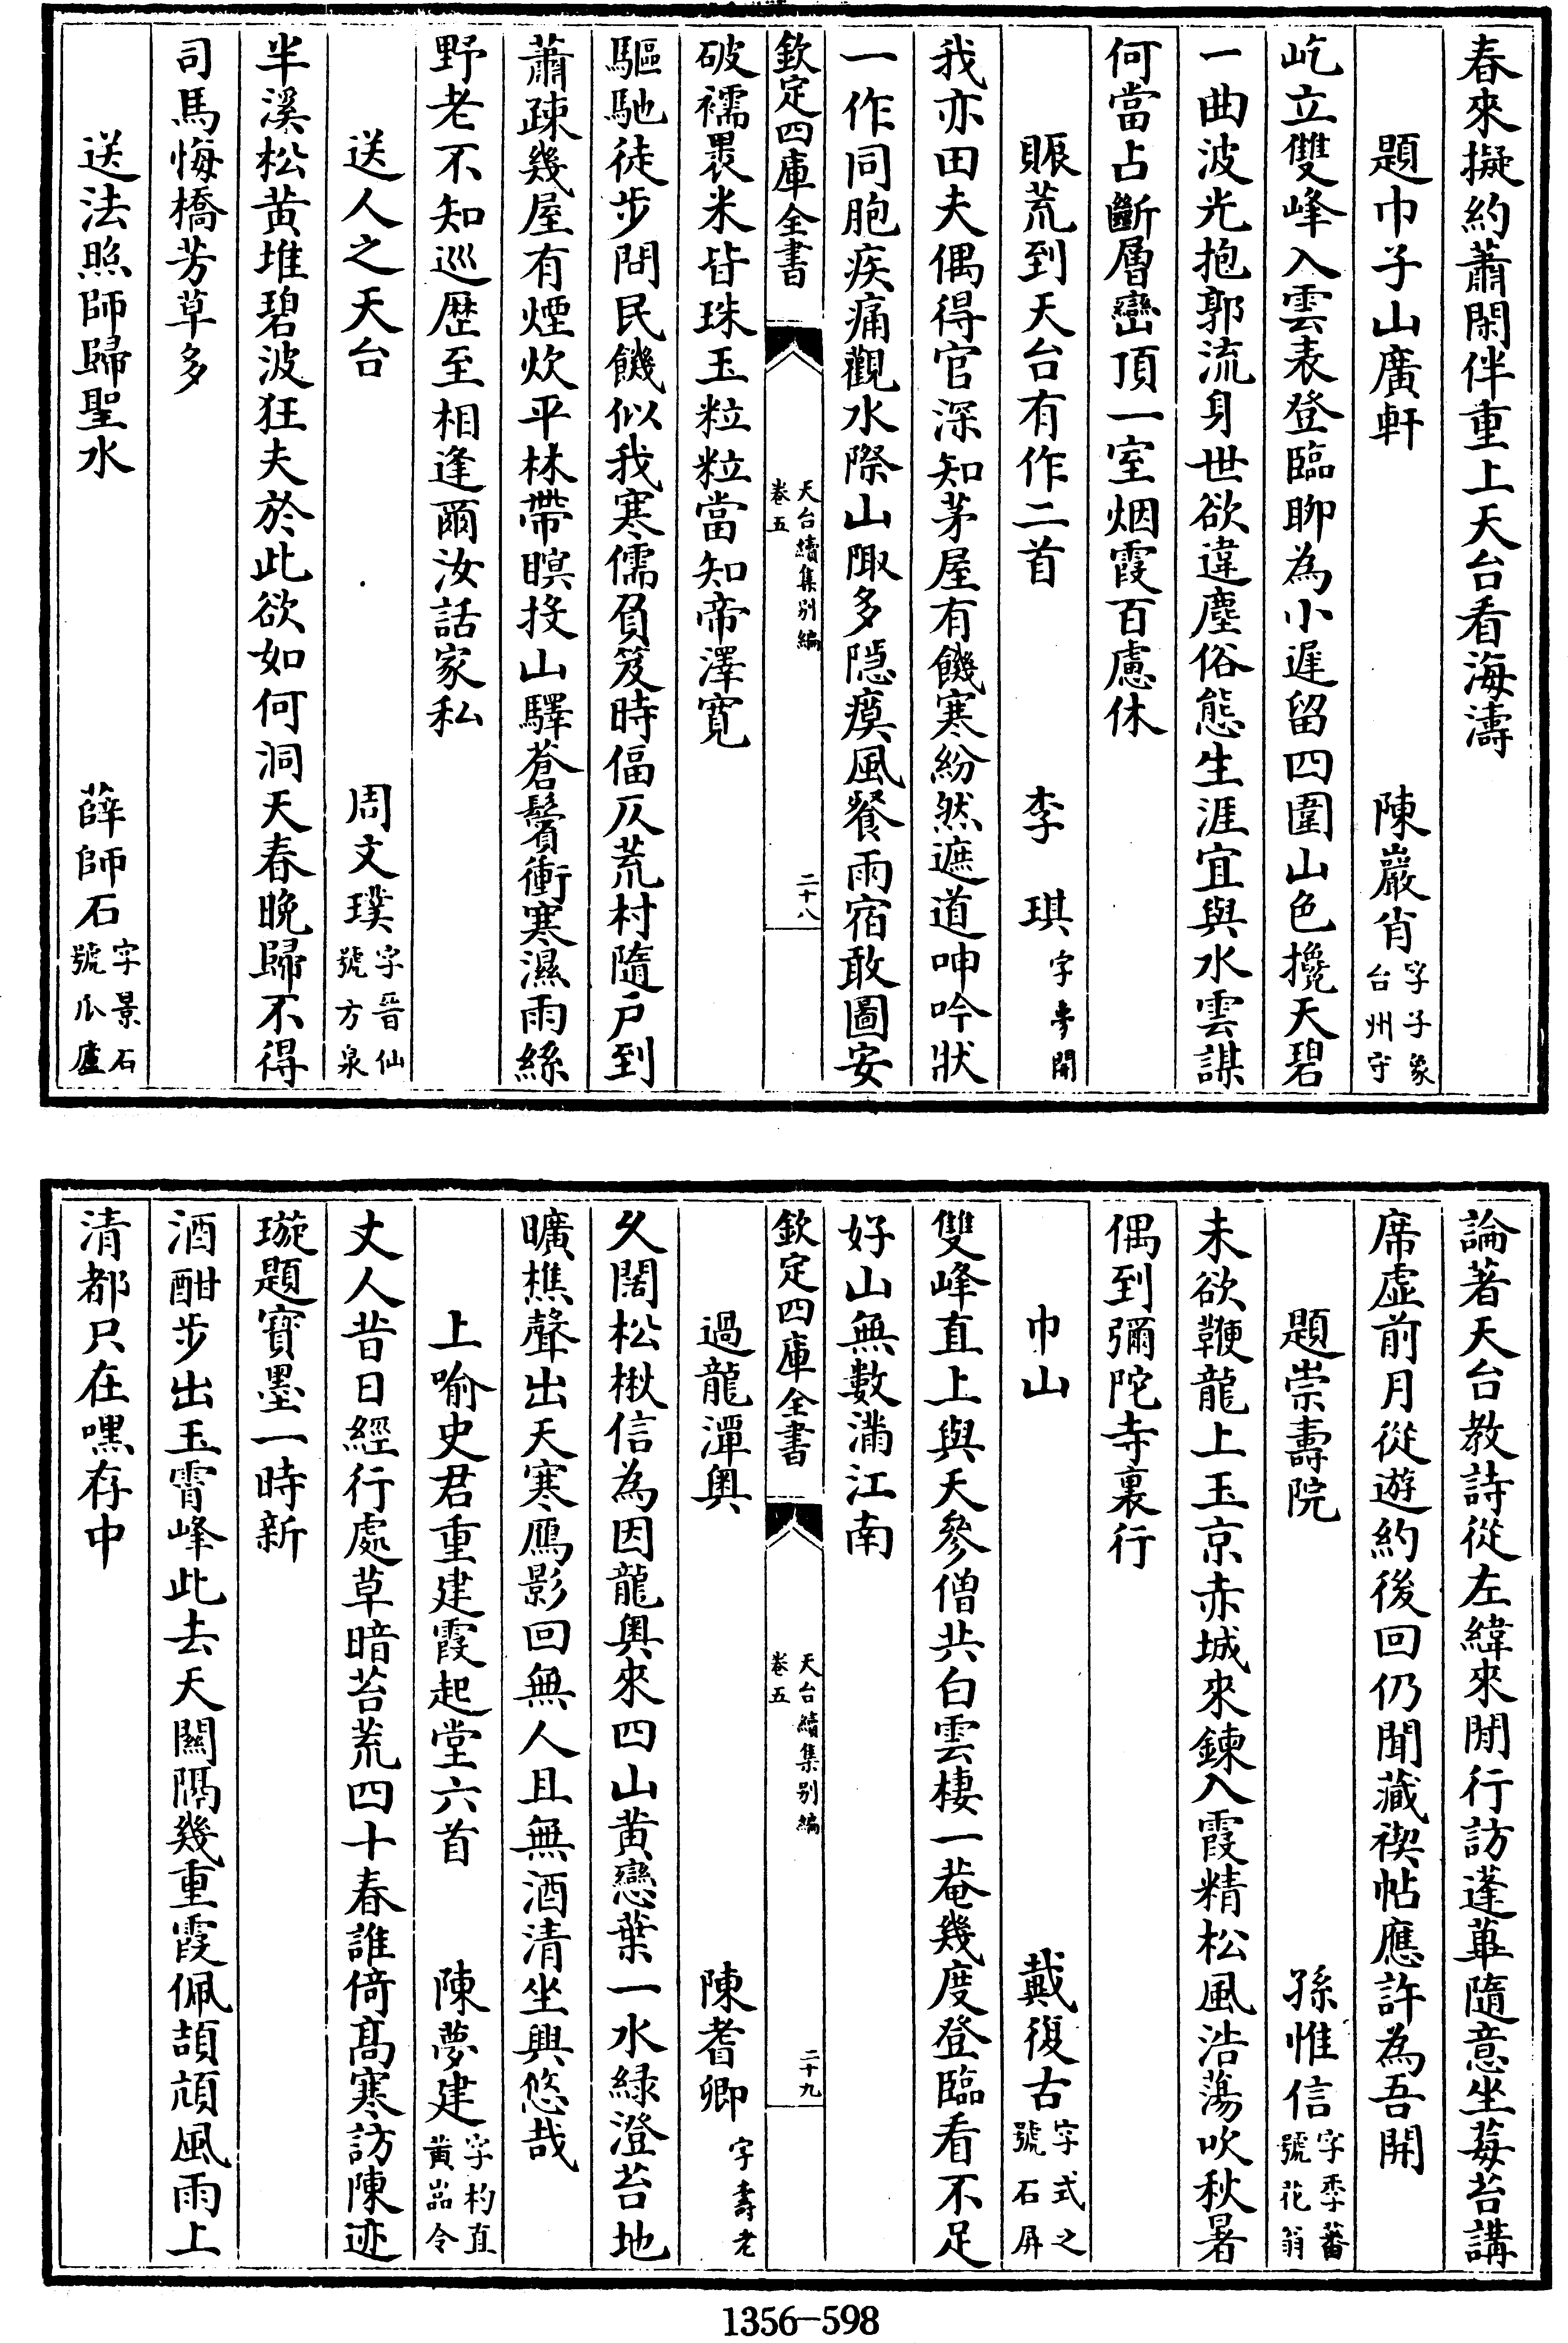 春來擬約蕭閑伴重上天台看海濤
題巾子山廣軒 陳巖肖字子象台州守
屹立雙峰入雲表登臨聊為小遲留四圍山色攙天碧
一曲波光抱郭流身世欲違塵俗態生涯宜與水雲謀
何當占斷層巒頂一室烟霞百慮休
賑荒到天台有作二首 李琪字夢開
我亦田夫偶得官深知茅屋有饑寒紛然遮道呻吟狀
一作同胞疾痛觀水際山陬多隱瘼風餐雨宿敢圖安
欽定四庫全書 天台續集别編卷五 二十八
破襦畏米皆珠玉粒粒當知帝澤寛
驅馳徒步問民饑似我寒儒負笈時偪仄荒村隨戶到
蕭疎幾屋有煙炊平林帶暝投山驛蒼鬢衝寒濕雨絲
野老不知巡歴至相逢爾汝話家私
送人之天台 周文璞字晉仙號方泉
半溪松黄堆碧波狂夫於此欲如何洞天春晚歸不得
司馬悔橋芳草多
送法照師歸聖水 薛師石字景石號瓜廬
論著天台教詩從左緯來閒行訪蓬蓽隨意坐莓苔講
席虚前月從遊約後回仍聞藏禊帖應許為吾開
題崇壽院 孫惟信字季蕃號花翁
未欲鞭龍上玉京赤城來鍊入霞精松風浩蕩吹秋暑
偶到彌陀寺裏行
巾山 戴復古字式之號石屏
雙峰直上與天參僧共白雲棲一菴幾度登臨看不足
好山無數滿江南
欽定四庫全書 天台續集别編卷五 二十九
過龍潭奥 陳耆卿字壽老
久闊松楸信為因龍奥來四山黄戀葉一水緑澄苔地
曠樵聲出天寒鴈影回無人且無酒清坐興悠哉
上喻史君重建霞起堂六首 陳夢建字杓直黄嵓令
丈人昔日經行處草暗苔荒四十春誰倚髙寒訪陳迹
璇題寳墨一時新
酒酣步出玉霄峰此去天關隔幾重霞佩頡頏風雨上
清都只在嘿存中
1356-598